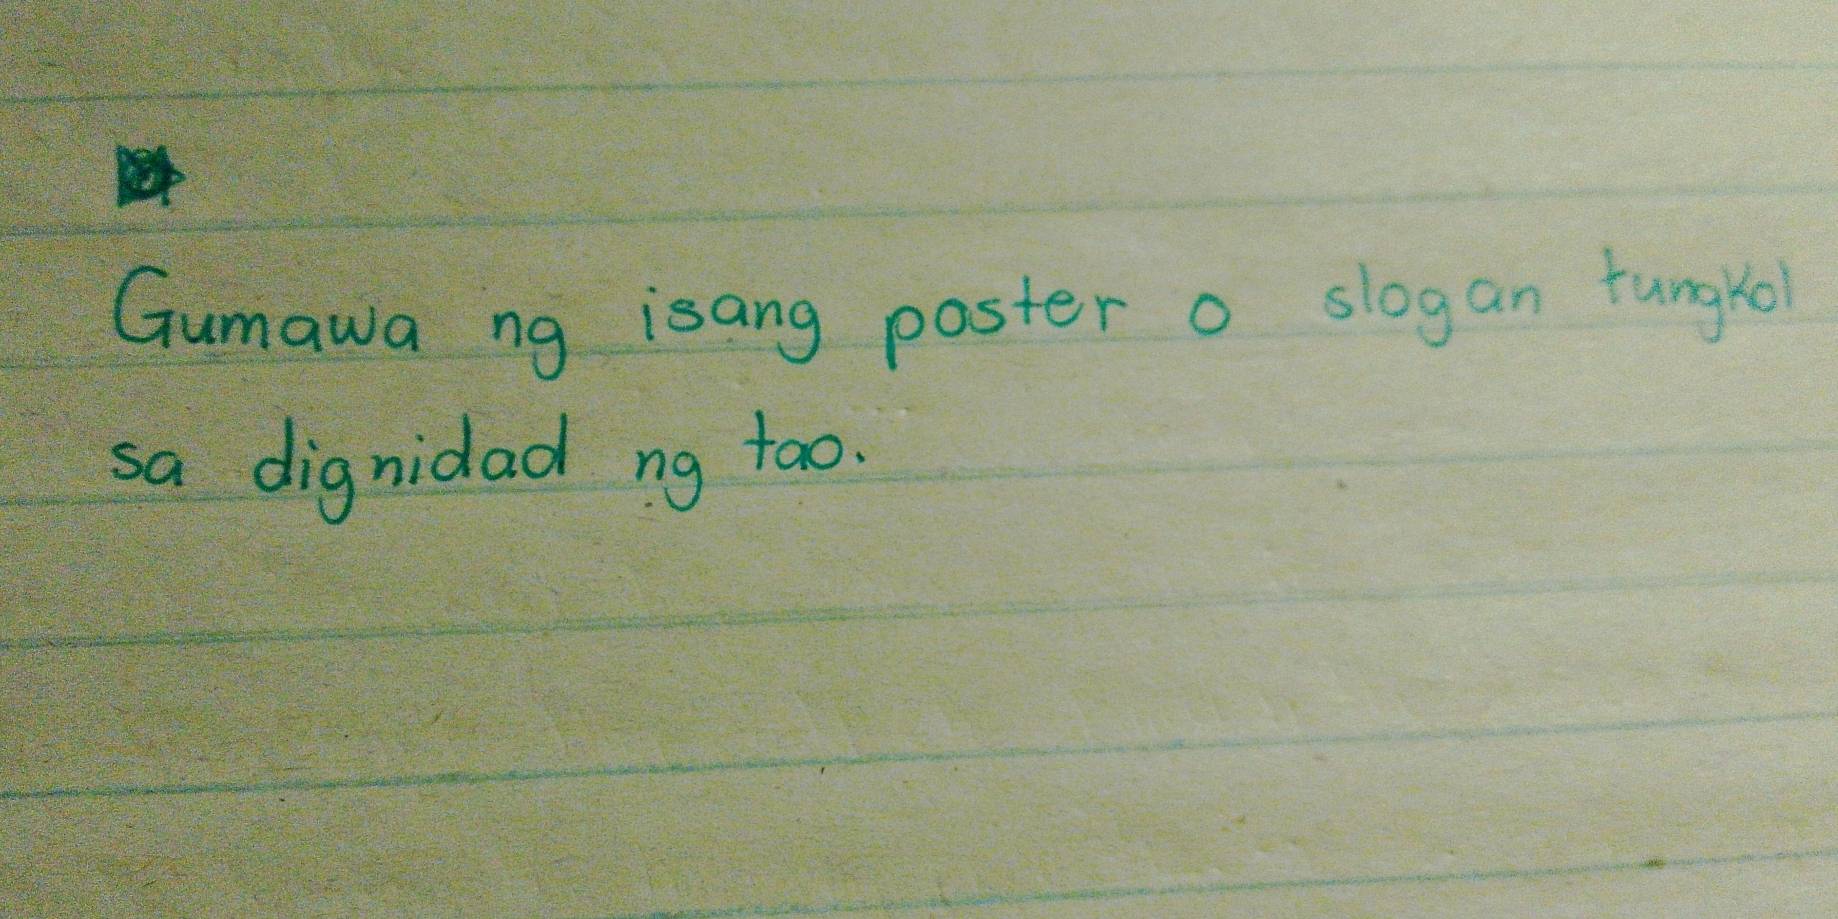 Gumawa ng isang poster o slogan tungkol
sa dignidad ng tao.